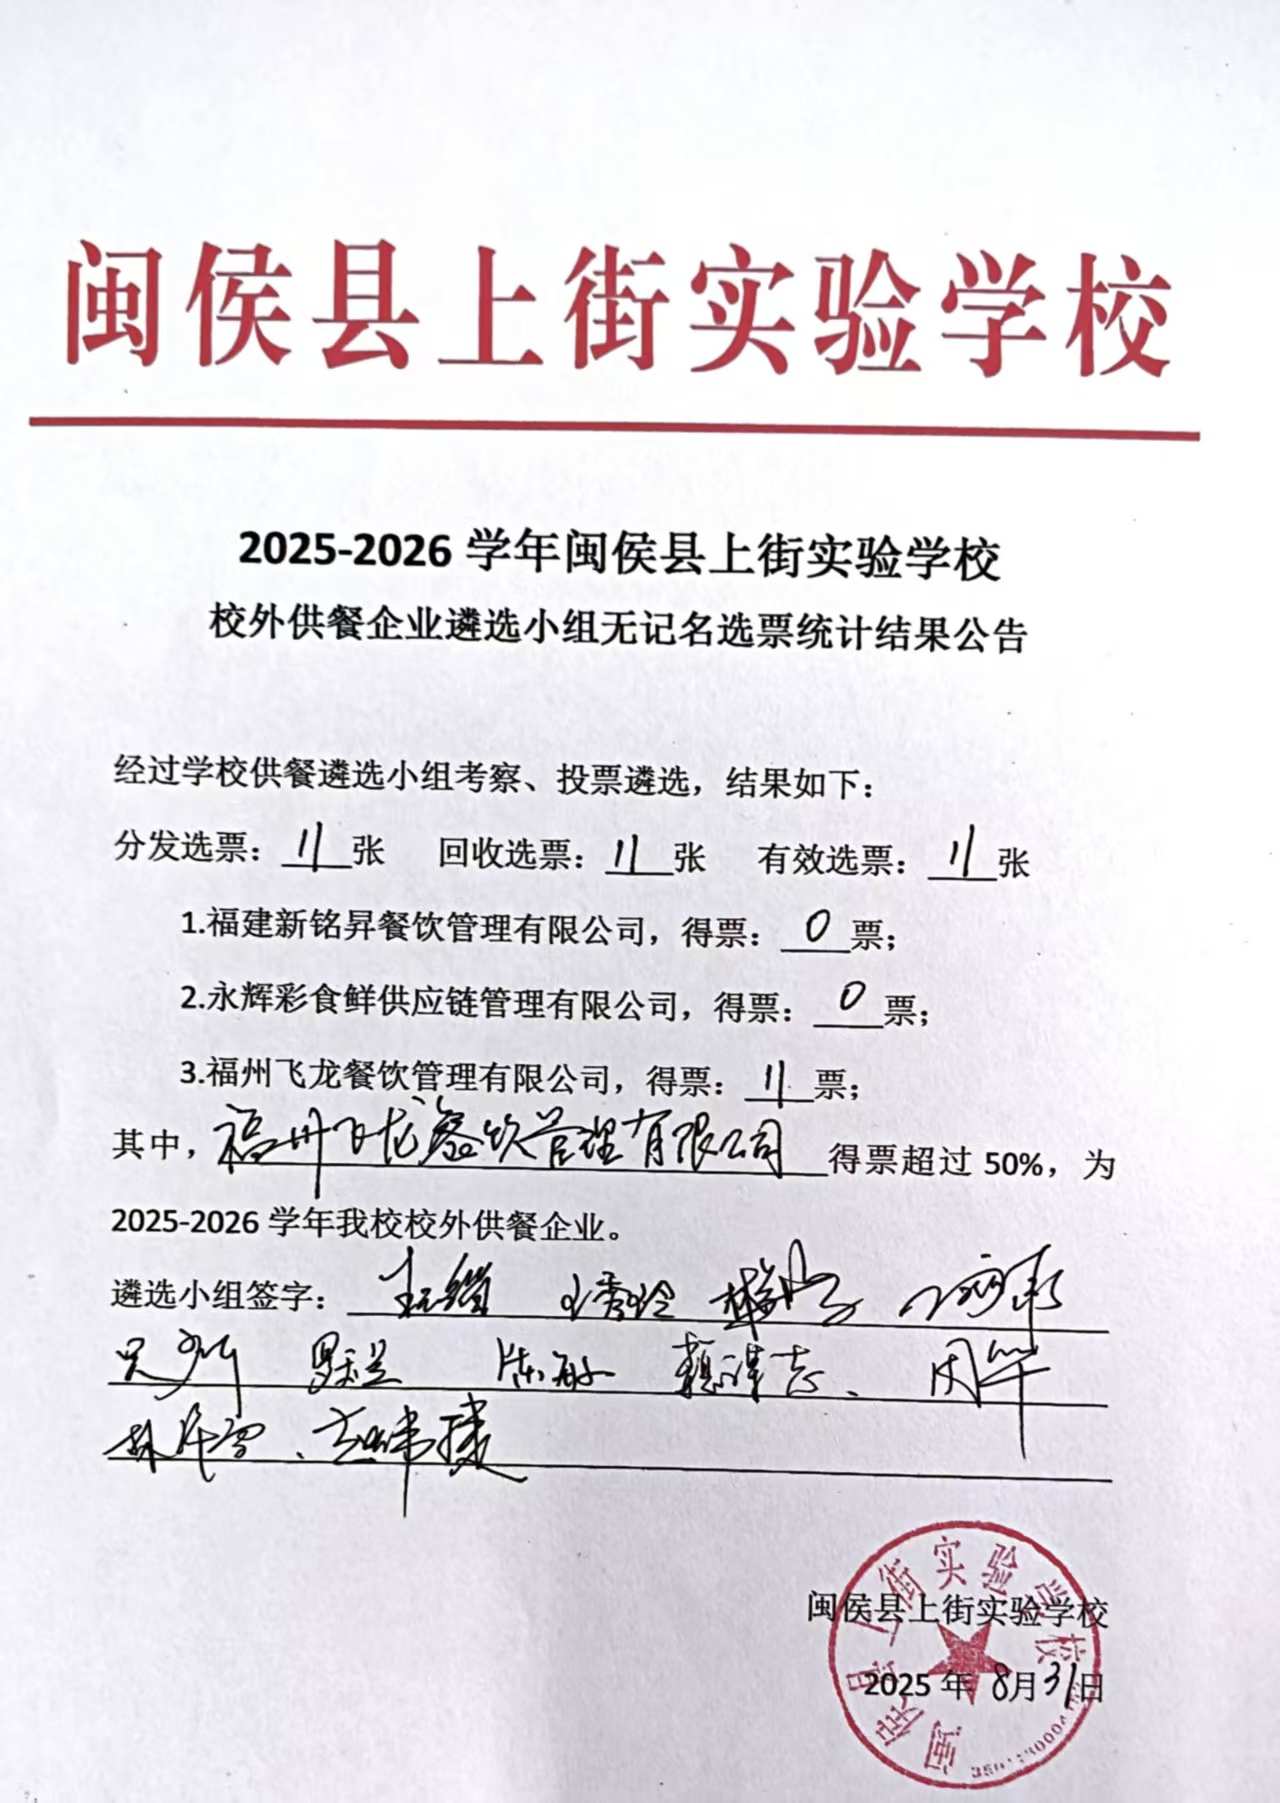 闽侯县上街实验学校
2025-2026 学年闽侯县上街实验学校
校外供餐企业遴选小组无记名选票统计结果公告
经过学校供餐遴选小组考察、投票遴选，结果如下：
分发选票：11张 回收选票：11张 有效选票：11张
1.福建新铭昇餐饮管理有限公司，得票：0票；
2.永辉彩食鲜供应链管理有限公司，得票：0票；
3.福州飞龙餐饮管理有限公司，得票：11票；
其中，福州飞龙餐饮管理有限公司得票超过 50%，为
2025-2026 学年我校校外供餐企业。
遴选小组签字：
陈敏 周华
闽侯县上街实验学校
2025 年 8月31日
闽侯县上街实验学校